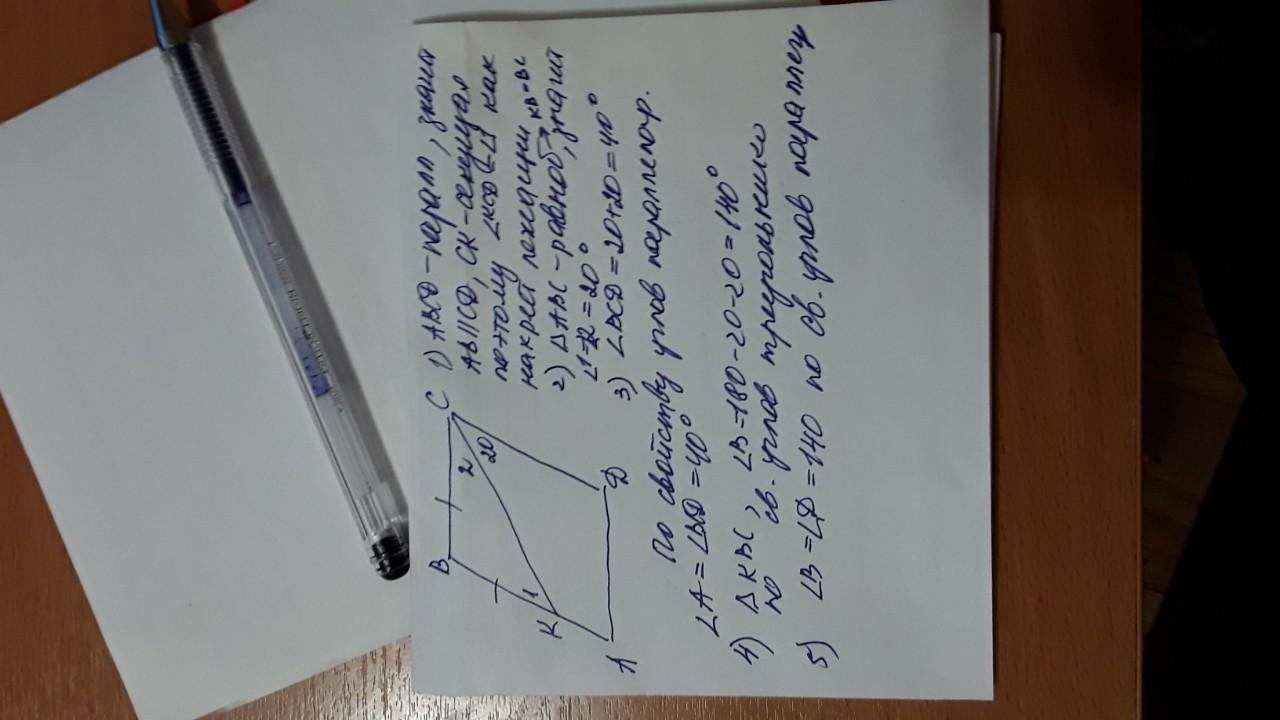 B
C
2
20
1
K
A
D
1) ABCD - паралл, значит
AB||CD, CK - секущая
поэтому ∠KCD = ∠1 как
накрест лежащии KB=BC
2) △ABC - равноб, значит
∠1=∠2=20°
3) ∠BCD = 20+20=40°
По свойству углов параллелогр.
∠A = ∠BCD = 40°
4) △KBC, ∠B=180-20-20=140°
по св. углов треугольника
5) ∠B=∠D=140 по св. углов параллел